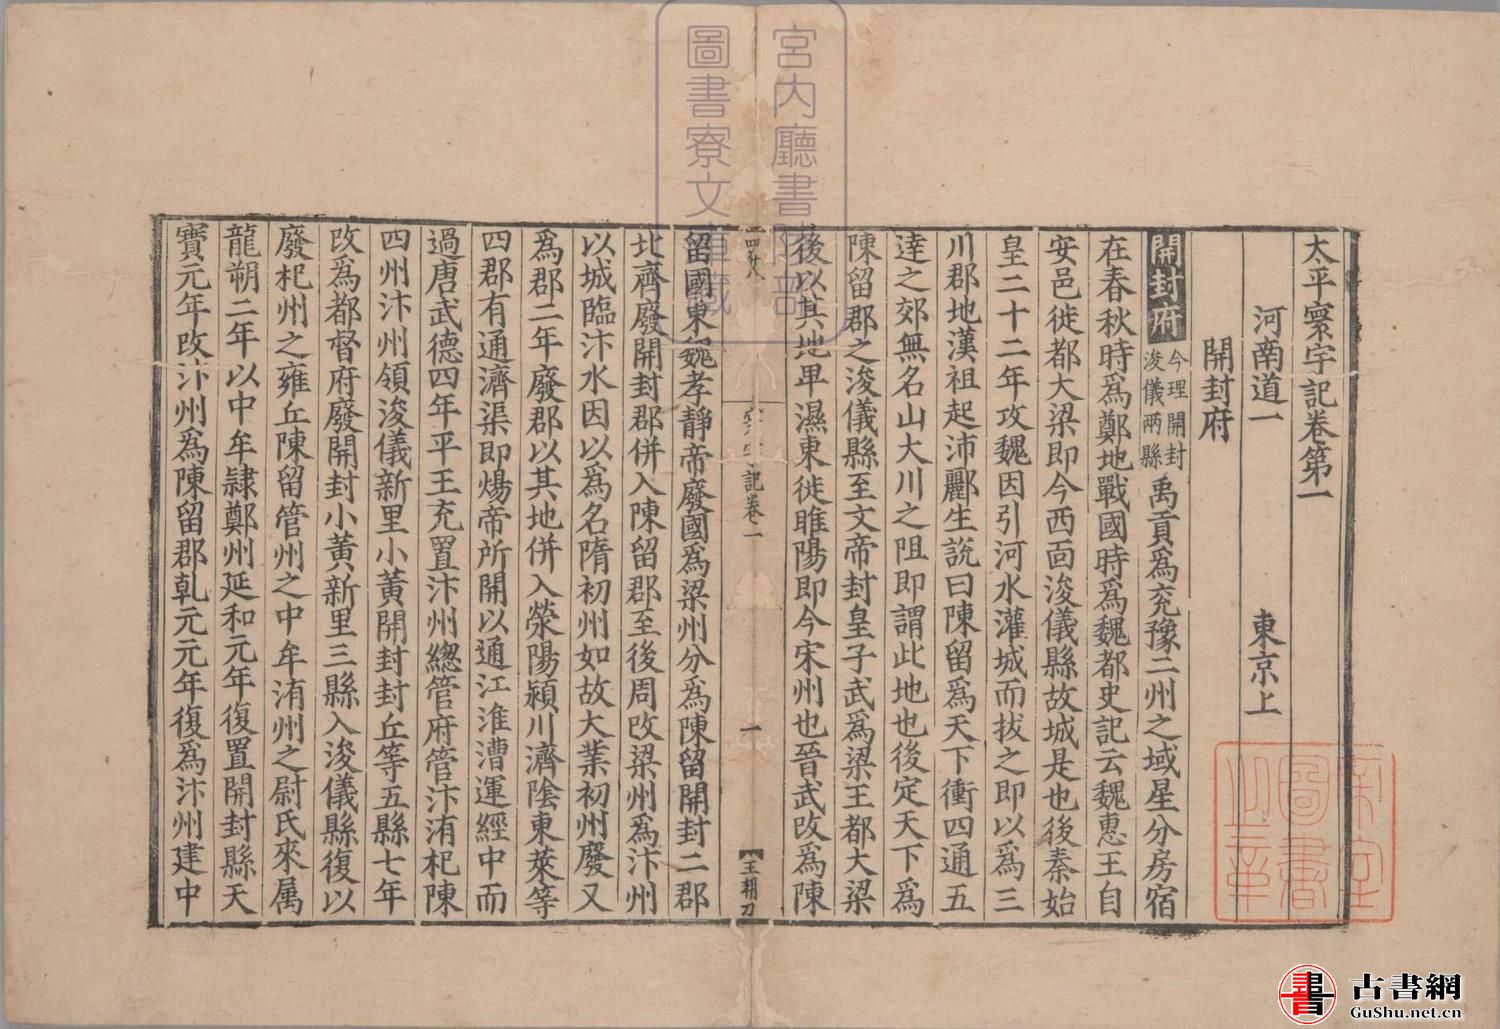 太平寰宇記卷第一
河南道一 東京上
開封府
開封府 今理開封浚儀兩縣 禹貢爲兖豫二州之域星分房宿
在春秋時爲鄭地戰國時爲魏都史記云魏惠王自
安邑徙都大梁即今西面浚儀縣故城是也後秦始
皇二十二年攻魏因引河水灌城而拔之即以爲三
川郡地漢祖起沛酈生說曰陳留爲天下衝四通五
達之郊無名山大川之阻即謂此地也後定天下爲
陳留郡之浚儀縣至文帝封皇子武爲梁王都大梁
後以其地卑濕東徙睢陽即今宋州也晉武改爲陳
記卷一
一
王朝刀
留國東魏孝靜帝廢國爲梁州分爲陳留開封二郡
北齊廢開封郡併入陳留郡至後周改梁州爲汴州
以城臨汴水因以爲名隋初州如故大業初州廢又
爲郡二年廢郡以其地併入滎陽潁川濟陰東萊等
四郡有通濟渠即煬帝所開以通江淮漕運經中而
過唐武德四年平王充置汴州緫管府管汴洧杞陳
四州汴州領浚儀新里小黃開封封丘等五縣七年
改爲都督府廢開封小黃新里三縣入浚儀縣復以
廢杞州之雍丘陳留管州之中牟洧州之尉氏來属
龍朔二年以中牟隷鄭州延和元年復置開封縣天
寶元年改汴州爲陳留郡乹元元年復爲汴州建中
宮內廳書陵部
圖書寮文庫藏
帝室
圖書
之章
古書網
GuShu.net.cn